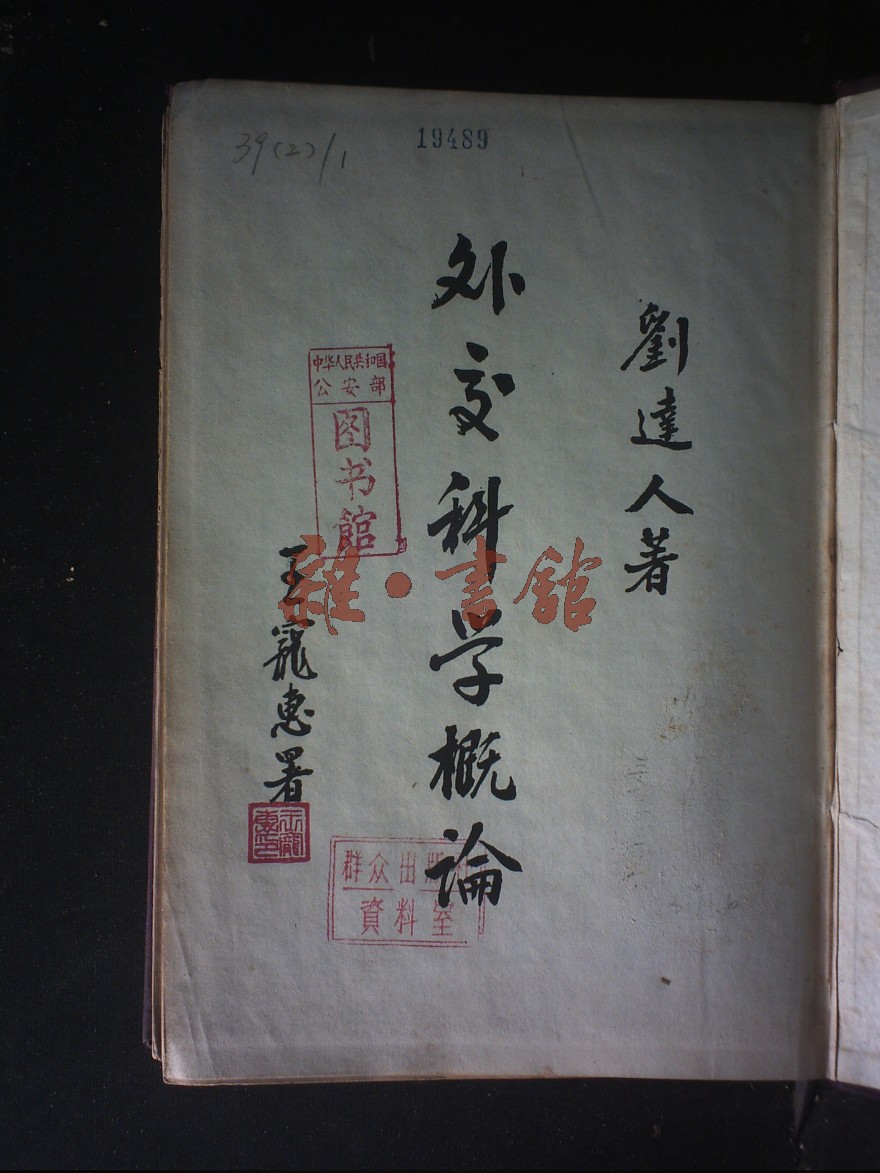 39(2)/1
19489
劉達人著
外交科学概論
王寵惠署
王寵惠印
中华人民共和国
公安部
图书館
雜·書館
群众出版社
資料室